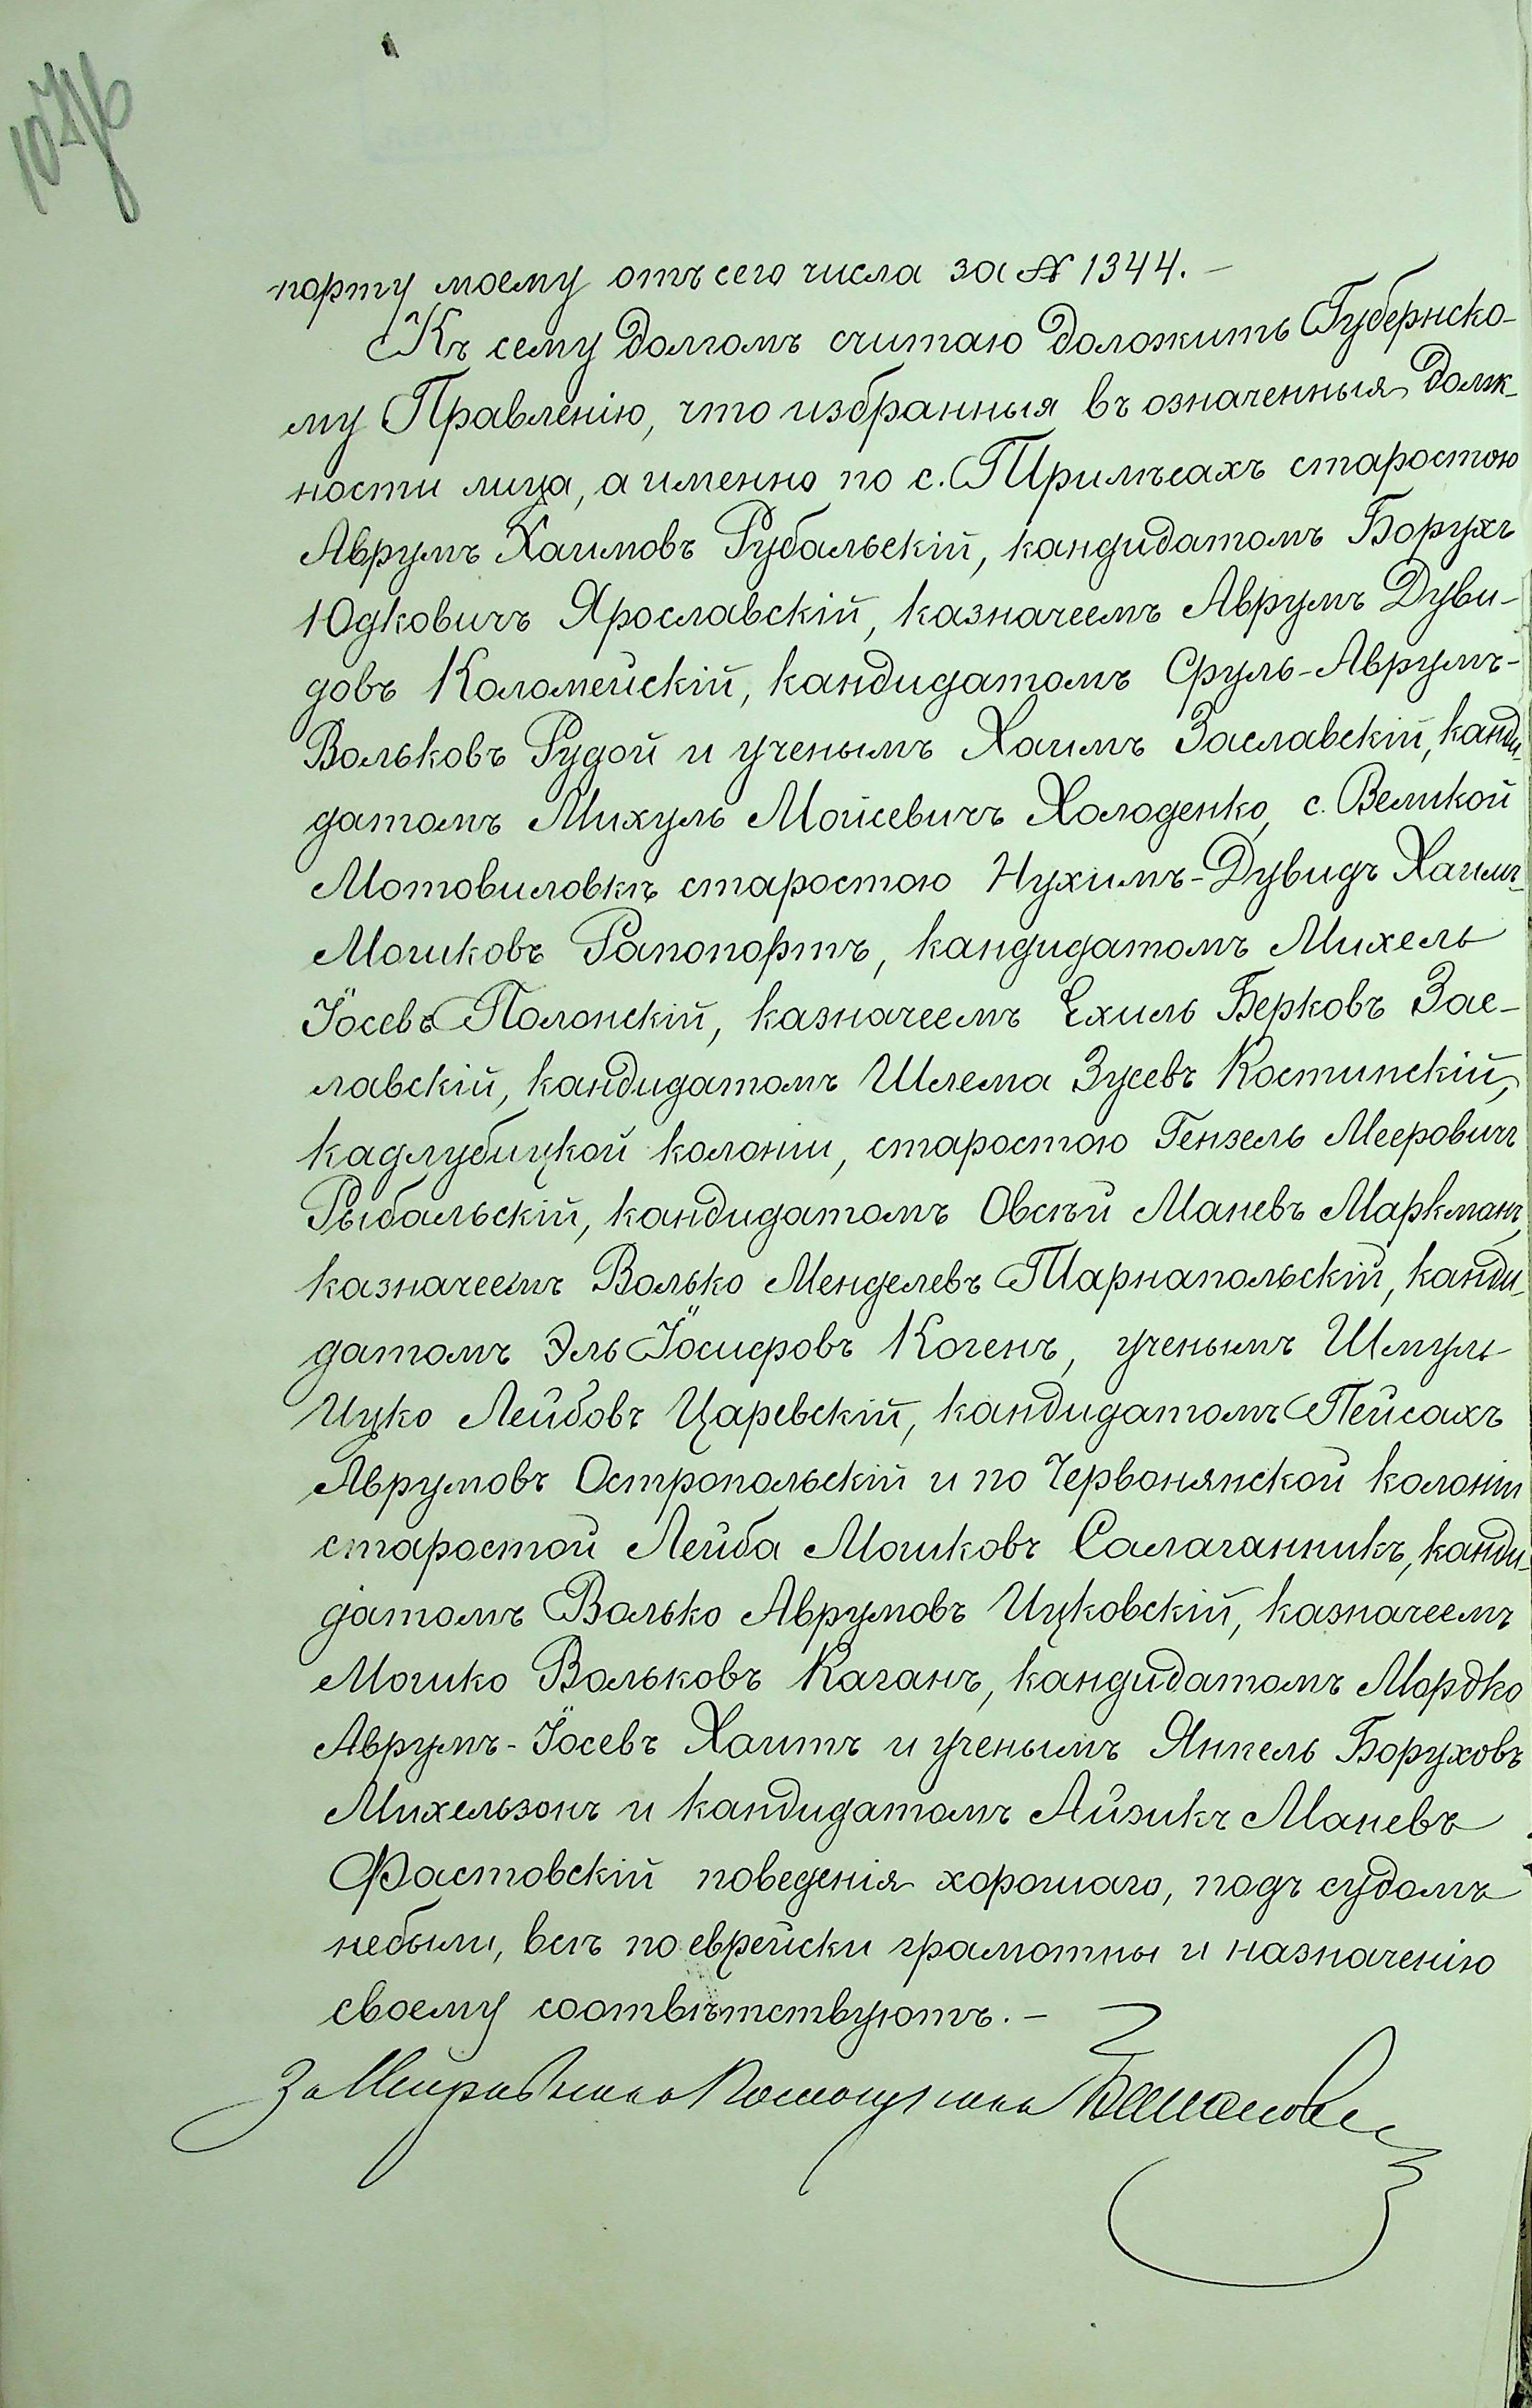 порту моему отъ сего числа за № 1344. –
Къ сему долгомъ считаю доложить Губернско-
му Правленію, что избранныя въ означенныя долж-
ности лица, а именно по с. Трилѣсахъ старостою
Аврумъ Хаимовъ Рубальскій, кандидатомъ Борухъ
Юдковичъ Ярославскій, казначеемъ Аврумъ Дуви-
довъ Коломейскій, кандидатомъ Сруль-Аврумъ-
Вольковъ Рудой и ученымъ Хаимъ Заславскій, канди-
датомъ Михуль Мойсевичъ Холоденко, с. Великой
Мотовиловкѣ старостою Нухимъ-Дувидъ Хаимъ-
Мошковъ Рапопортъ, кандидатомъ Михель
Іосевъ Полонскій, казначеемъ Ехиль Берковъ Зас-
лавскій, кандидатомъ Шлема Зусевъ Костинскій,
кадлубицкой колоніи, старостою Гензель Мееровичъ
Рыбальскій, кандидатомъ Овсѣй Маневъ Маркманъ,
казначеемъ Волько Менделевъ Тарнапольскій, канди-
датомъ Эль Іосифовъ Когенъ, ученымъ Шмуль
Ицко Лейбовъ Царевскій, кандидатомъ Пейсахъ
Аврумовъ Остропольскій и по Червонянской колоніи
старостой Лейба Мошковъ Салаганникъ, канди-
датомъ Волько Аврумовъ Ицковскій, казначеемъ
Мошко Вольковъ Каганъ, кандидатомъ Мордко
Аврумъ-Іосевъ Хаитъ и ученымъ Янкель Боруховъ
Михельзонъ и кандидатомъ Айзикъ Маневъ
Фастовскій поведенія хорошаго, подъ судомъ
небыли, всѣ по еврейски грамотны и назначенію
своему соотвѣтствуютъ. –
За Исправника Помощникъ